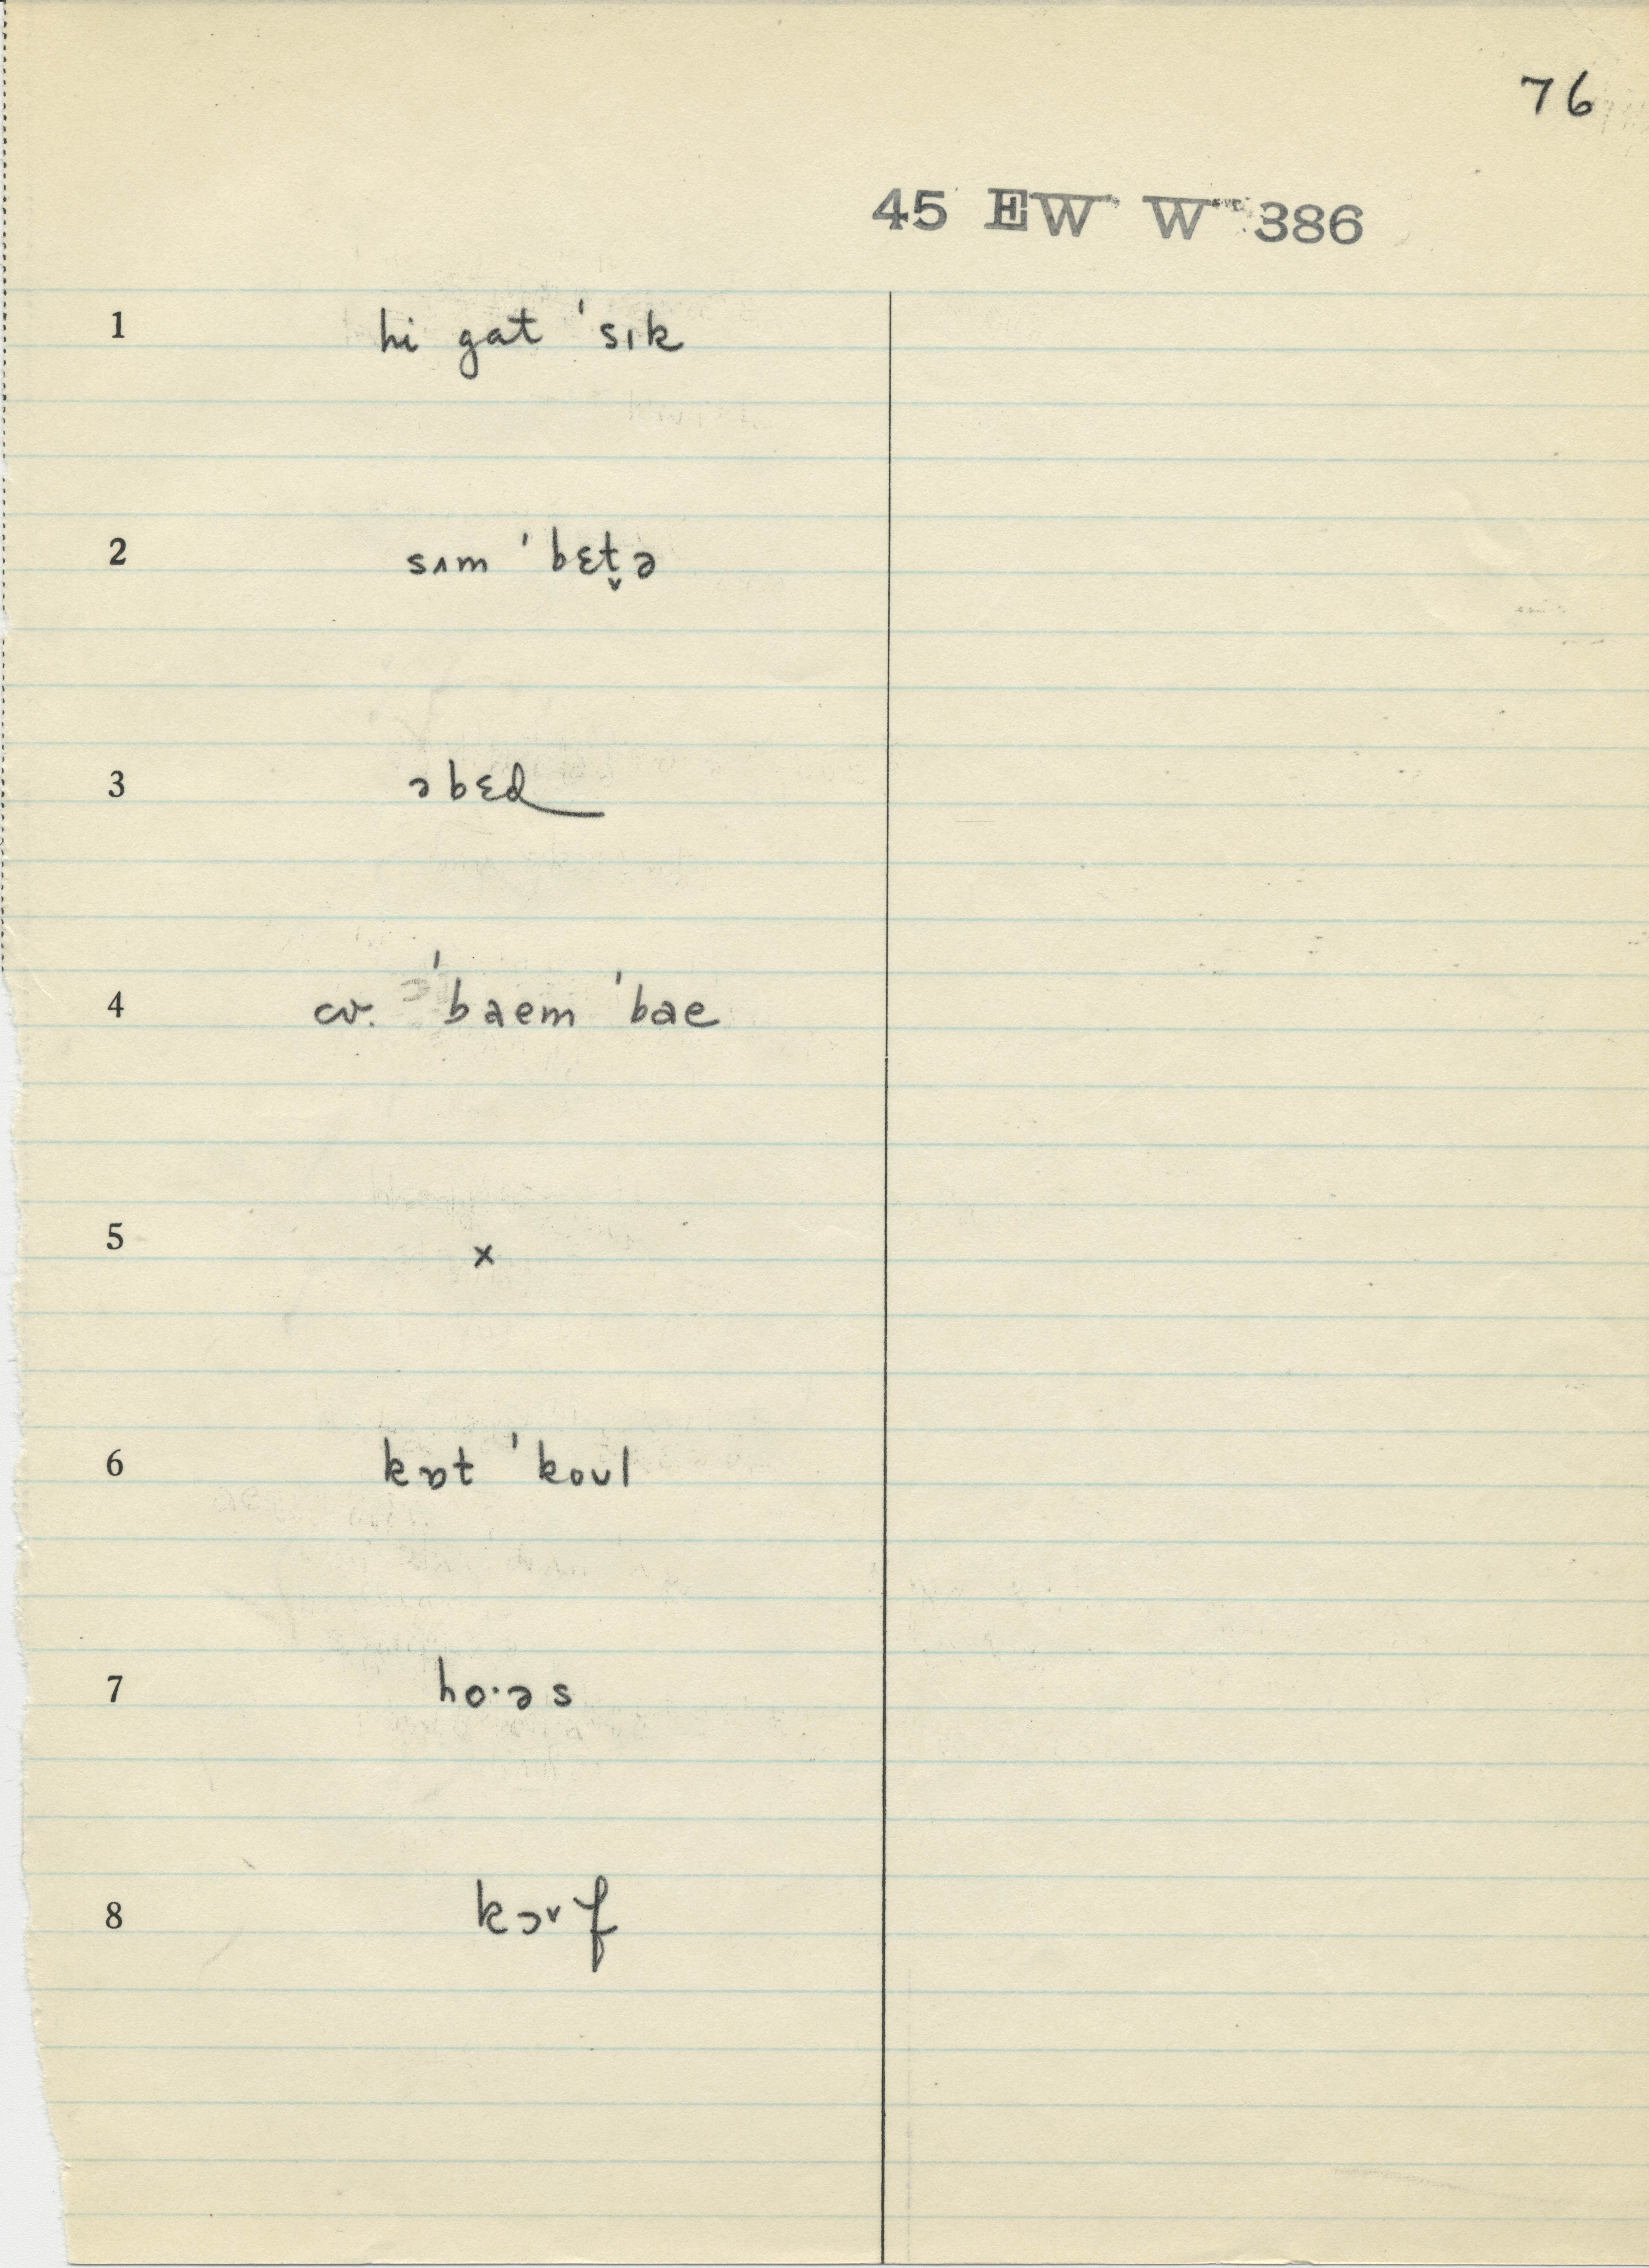 76
45 EW W 386
1 hi gat ˈsɪk
2 sʌm ˈbɛt̬ə
3 əbɛd
4 cv. ˈbaem ˈbae
5 x
6 kɒt ˈkoʊl
7 ho·əs
8 kɔˇf